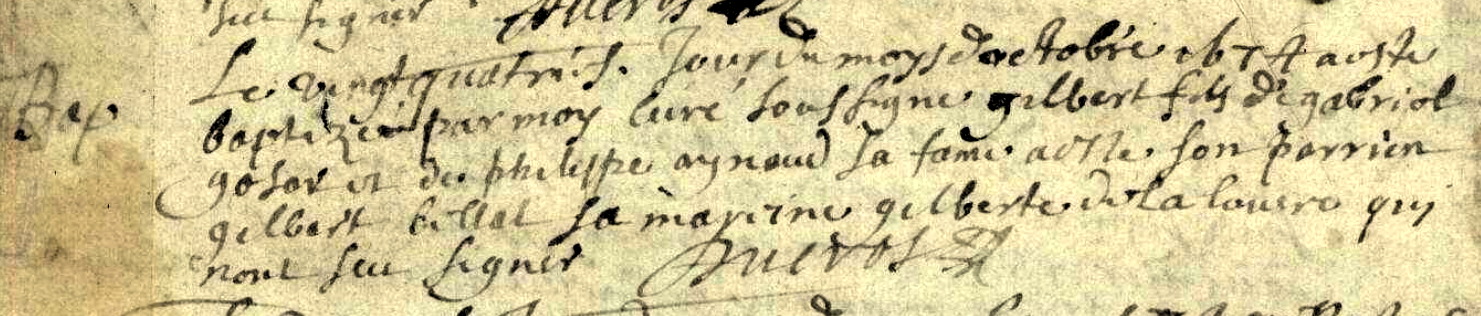 sceu signer
Le vingt quatries. Jour du moys doctobre 1674 a este
Bap baptizé par moy curé soussigne gilbert fils de gabriel
gosor et de philippe aynaud sa fame a este son parrien
gilbert billat sa marine gilberte de la louere qui
nont sceu signer